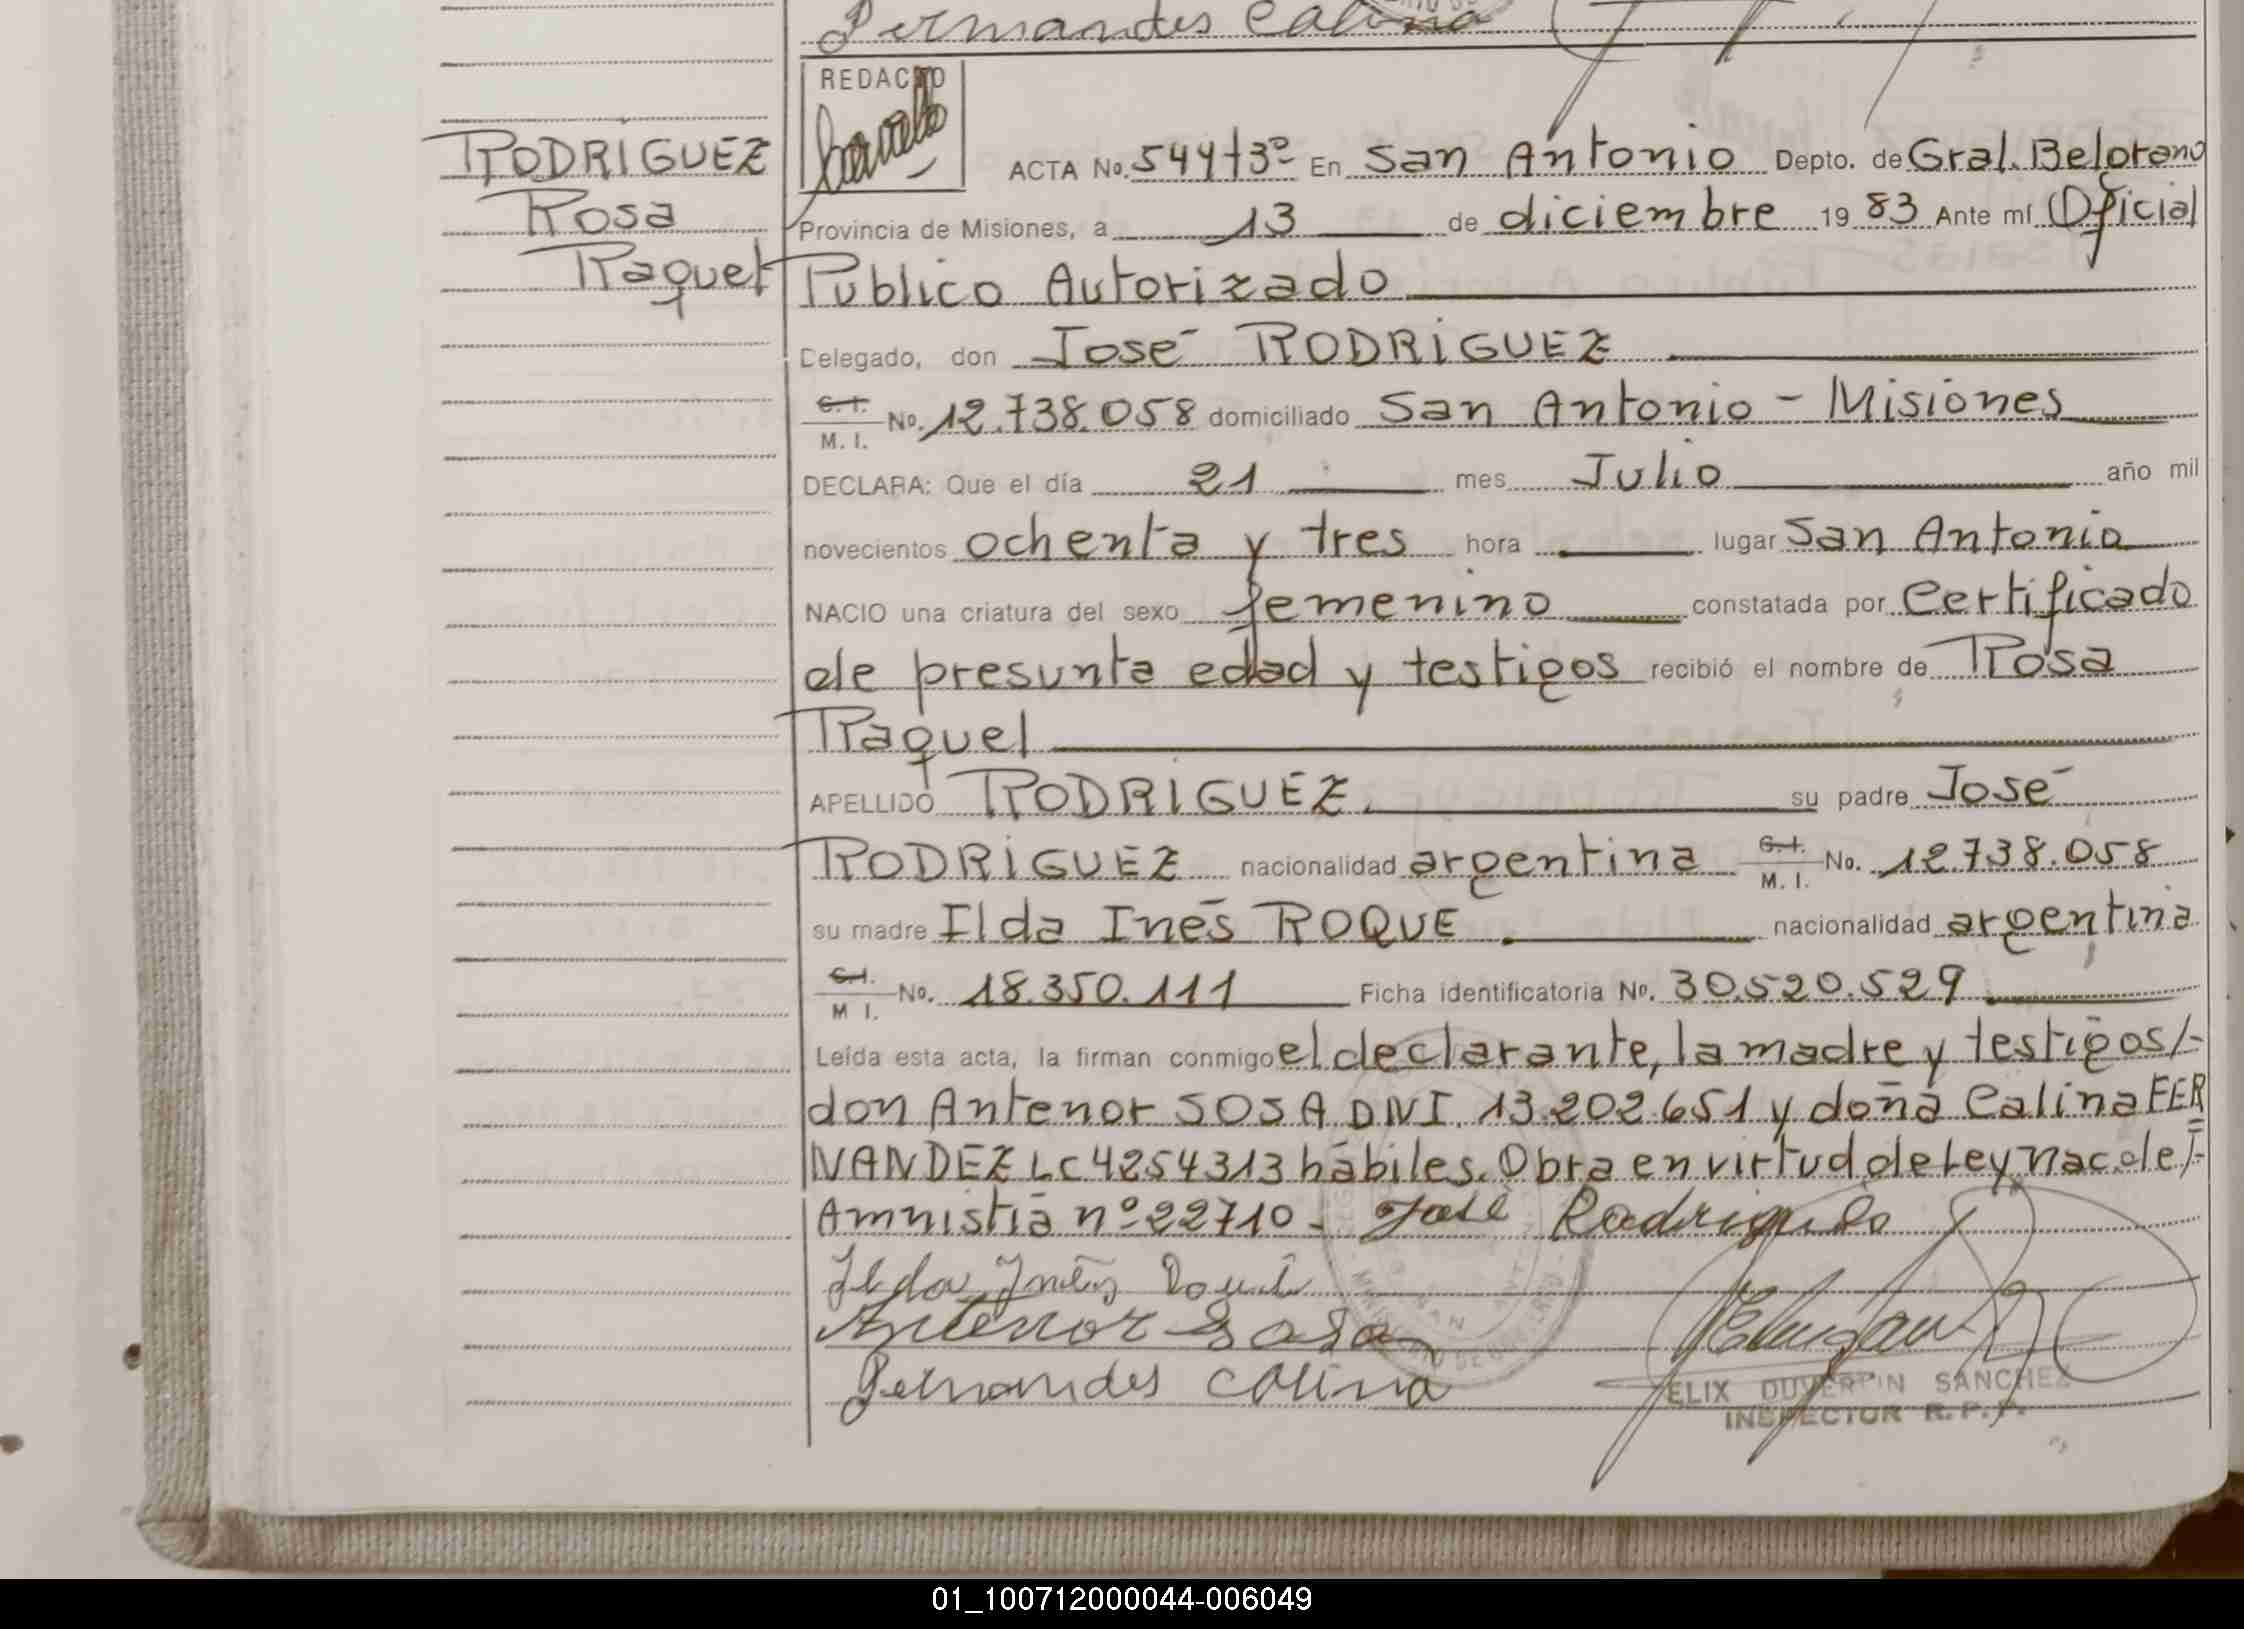 Fernandes Calina
REDACTO
RODRIGUEZ
Rosa
Raquel
ACTA No. 544 t3º En San Antonio Depto. de Gral. Belgrano
Provincia de Misiones, a 13 de diciembre 19 83 Ante mí Oficial
Publico Autorizado
Delegado, don José RODRIGUEZ
C.I. M.I. No. 12.738.058 domiciliado San Antonio - Misiones
DECLARA: Que el día 21 mes Julio año mil
novecientos ochenta y tres hora lugar San Antonio
NACIO una criatura del sexo femenino constatada por Certificado
de presunta edad y testigos recibió el nombre de Rosa
Raquel
APELLIDO RODRIGUEZ. su padre José
RODRIGUEZ nacionalidad argentina C.I. M.I. No. 12.738.058
su madre Ilda Inés ROQUE nacionalidad argentina
C.I. M I. No. 18.350.111 Ficha identificatoria No. 30.520.529
Leída esta acta, la firman conmigo el declarante, la madre y testigos/-
don Antenor SOSA DNI. 13.202.651 y doña Calina FER
NANDEZ LC 4254313 hábiles. Obra en virtud de Ley nac. de/-
Amnistía nº 22710- José Rodriguez
Ilda Inés Roque
Antenor Sosa
Fernandes Calina
FELIX DUVERPIN SANCHEZ
INSPECTOR R.P.P.
01_100712000044-006049